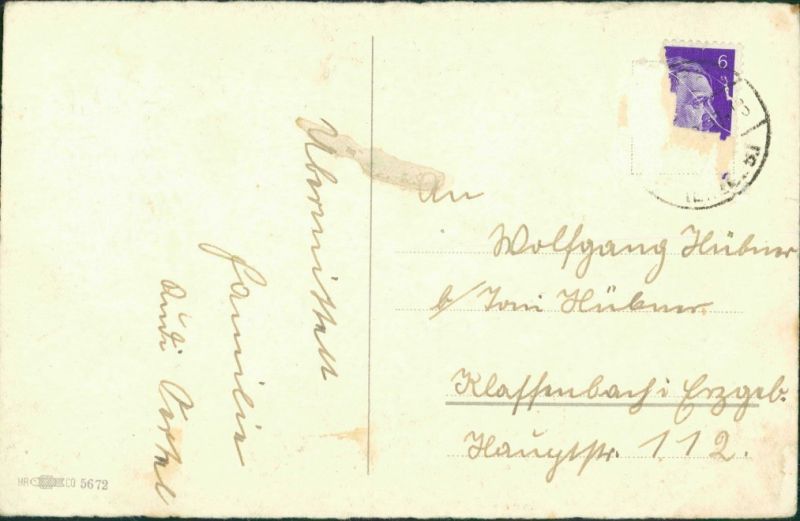 Übermittelt
Familie
Rudi Oertel
An
Wolfgang Hübner
b/ Toni Hübner.
Klaffenbach i Erzgeb.
Hauptstr. 112.
6
HR CO 5672